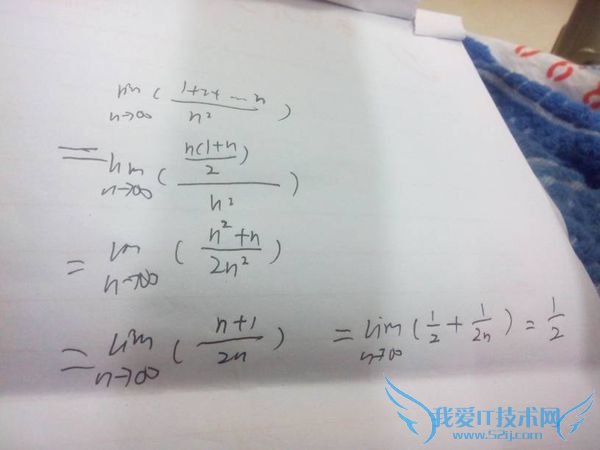 lim n→∞ ( 1+2+…n / n² )
= lim n→∞ ( n(1+n) / 2 / n² )
= lim n→∞ ( n²+n / 2n² )
= lim n→∞ ( n+1 / 2n ) = lim n→∞ ( 1/2 + 1/2n ) = 1/2
我爱IT技术网
www.52ij.com